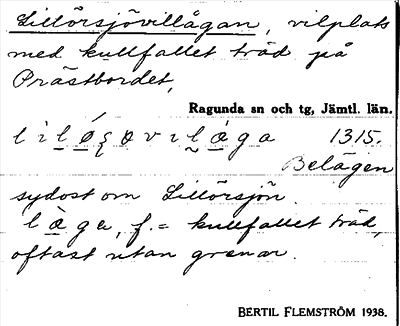 Lillörsjövillågan, vilplats
med kullfallet träd på
Prästbordet,
Ragunda sn och tg, Jämtl. län.
1315.
Belägen
sydost om Lillörsjön.
f. = kullfallet träd,
oftast utan grenar.
BERTIL FLEMSTRÖM 1938.